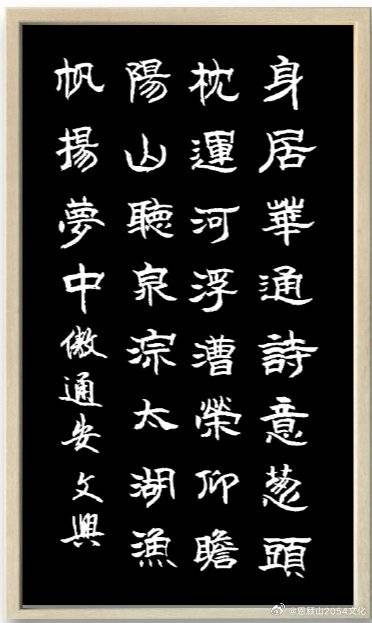 身居華通詩意葱頭
枕運河浮漕榮仰瞻
陽山聽泉淙太湖漁
帆揚夢中傲通安文興
山2054文化